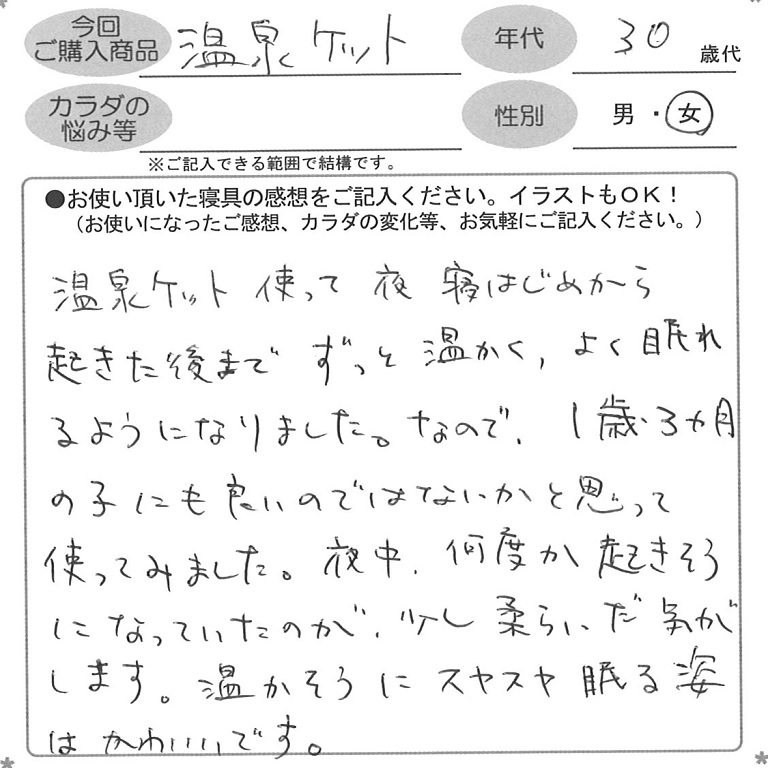 今回
ご購入商品
温泉ケット
年代
30
歳代
カラダの
悩み等
性別
男・女
※ご記入できる範囲で結構です。
●お使い頂いた寝具の感想をご記入ください。イラストもOK！
（お使いになったご感想、カラダの変化等、お気軽にご記入ください。）
温泉ケット 使って 夜 寝はじめから
起きた後まで ずっと 温かく, よく眠れ
るようになりました。なので、1歳3ヵ月
の子にも良いのではないかと思って
使ってみました。夜中、何度か起きそう
になっていたのが、少し柔らいだ気が
します。温かそうにスヤスヤ眠る姿
はかわいいです。